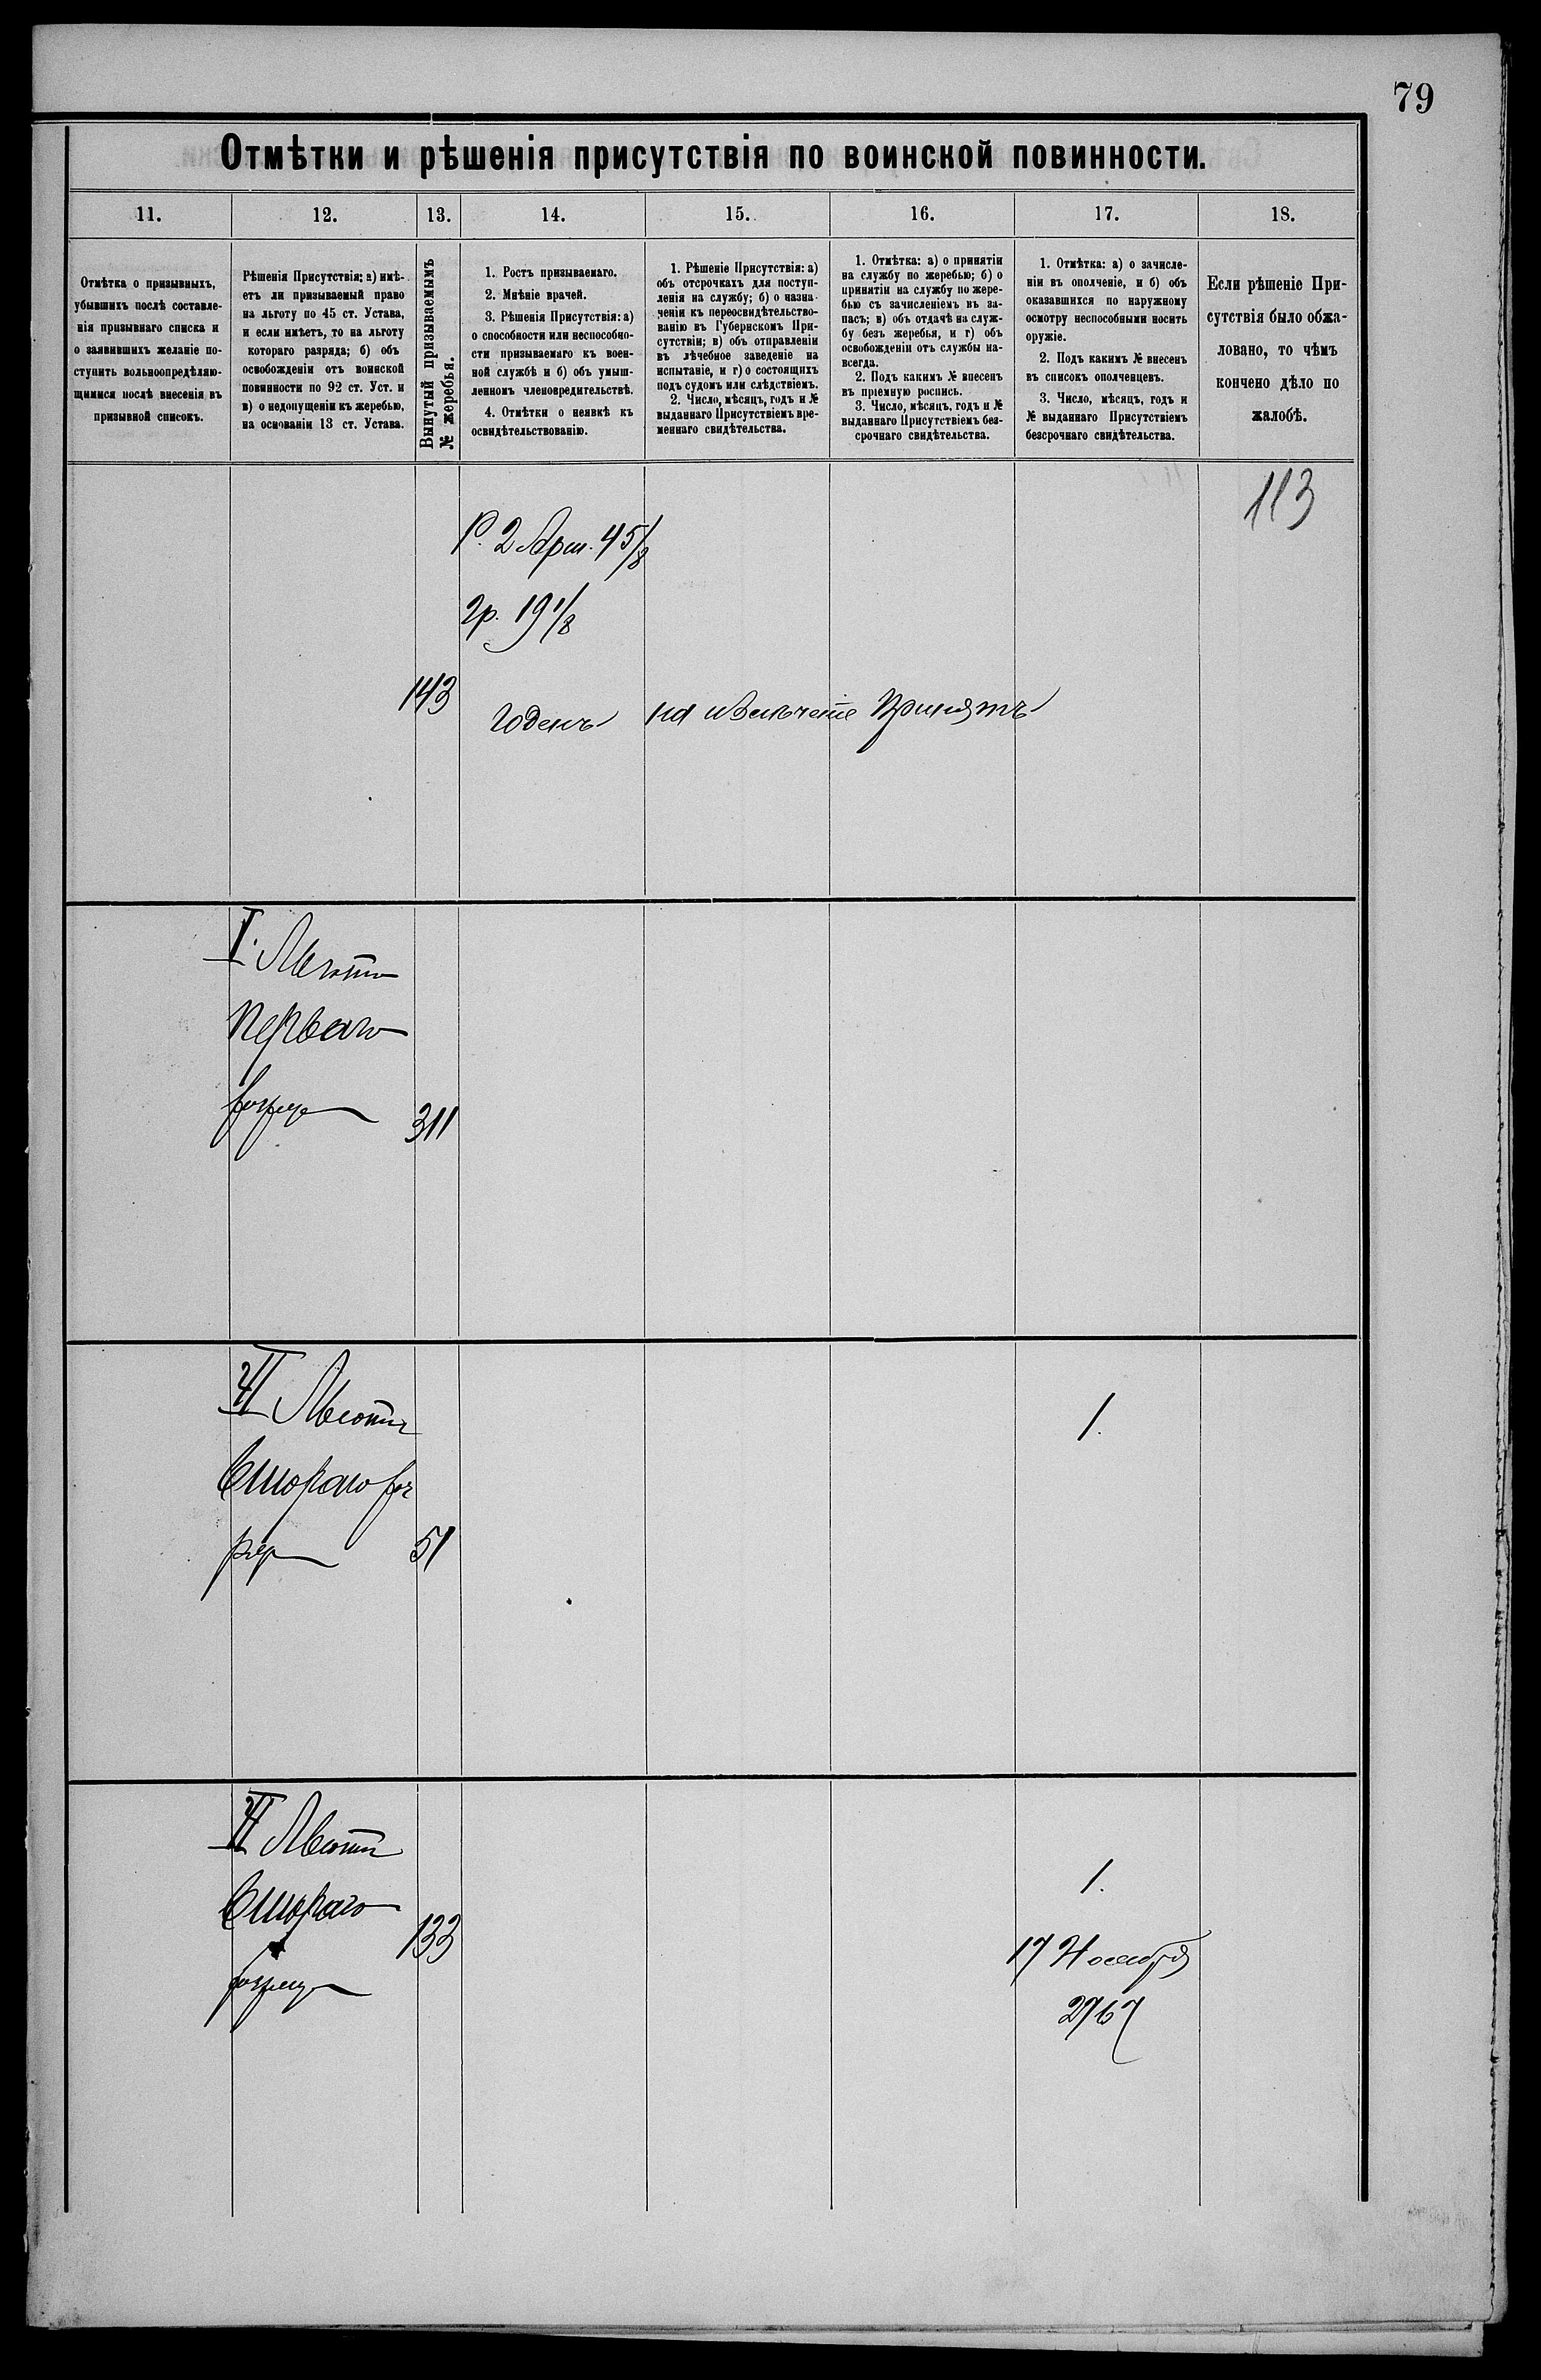 79
Отмѣтки и рѣшенія присутствія по воинской повинности.
11.
12.
13.
14.
15.
16.
17.
18.
Отмѣтка о призывныхъ,
убывшихъ послѣ составле-
нія призывнаго списка и
о заявившихъ желаніе по-
ступить вольноопредѣляю-
щимися послѣ внесенія въ
призывной списокъ.
Рѣшенія Присутствія: а) имѣ-
етъ ли призываемый право
на льготу по 45 ст. Устава,
и если имѣетъ, то на льготу
котораго разряда; б) объ
освобожденіи отъ воинской
повинности по 92 ст. Уст. и
в) о недопущеніи къ жеребью,
на основаніи 13 ст. Устава.
Вынутый призываемымъ
№ жеребья.
1. Ростъ призываемаго.
2. Мнѣніе врачей.
3. Рѣшенія Присутствія: а)
о способности или неспособно-
сти призываемаго къ воен-
ной службѣ и б) объ умыш-
ленномъ членовредительствѣ.
4. Отмѣтки о неявкѣ къ
освидѣтельствованію.
1. Рѣшеніе Присутствія: а)
объ отсрочкахъ для поступ-
ленія на службу; б) о назна-
ченіи къ переосвидѣтельство-
ванію въ Губернскомъ При-
сутствіи; в) объ отправленіи
въ лѣчебное заведеніе на
испытаніе, и г) о состоящихъ
подъ судомъ или слѣдствіемъ.
2. Число, мѣсяцъ, годъ и №
выданнаго Присутствіемъ вре-
меннаго свидѣтельства.
1. Отмѣтка: а) о принятіи
на службу по жеребью; б) о
принятіи на службу по жере-
бью съ зачисленіемъ въ за-
пасъ; в) объ отдачѣ на служ-
бу безъ жеребья, и г) объ
освобожденіи отъ службы на-
всегда.
2. Подъ какимъ № внесенъ
въ пріемную роспись.
3. Число, мѣсяцъ, годъ и №
выданнаго Присутствіемъ без-
срочнаго свидѣтельства.
1. Отмѣтка: а) о зачисле-
ніи въ ополченіе, и б) объ
оказавшихся по наружному
осмотру неспособными носить
оружіе.
2. Подъ какимъ № внесенъ
въ списокъ ополченцевъ.
3. Число, мѣсяцъ, годъ и
№ выданнаго Присутствіемъ
безсрочнаго свидѣтельства.
Если рѣшеніе При-
сутствія было обжа-
ловано, то чѣмъ
кончено дѣло по
жалобѣ.
113
Р. 2 Арш. 4 5/8
гр. 19 1/8
143
Годенъ на Принятъ
I. Льготы
перваго
разряда
311
II Льготы
втораго раз
ряда
51
1.
II Льготы
втораго
разряда
133
1.
17 Ноября
2767